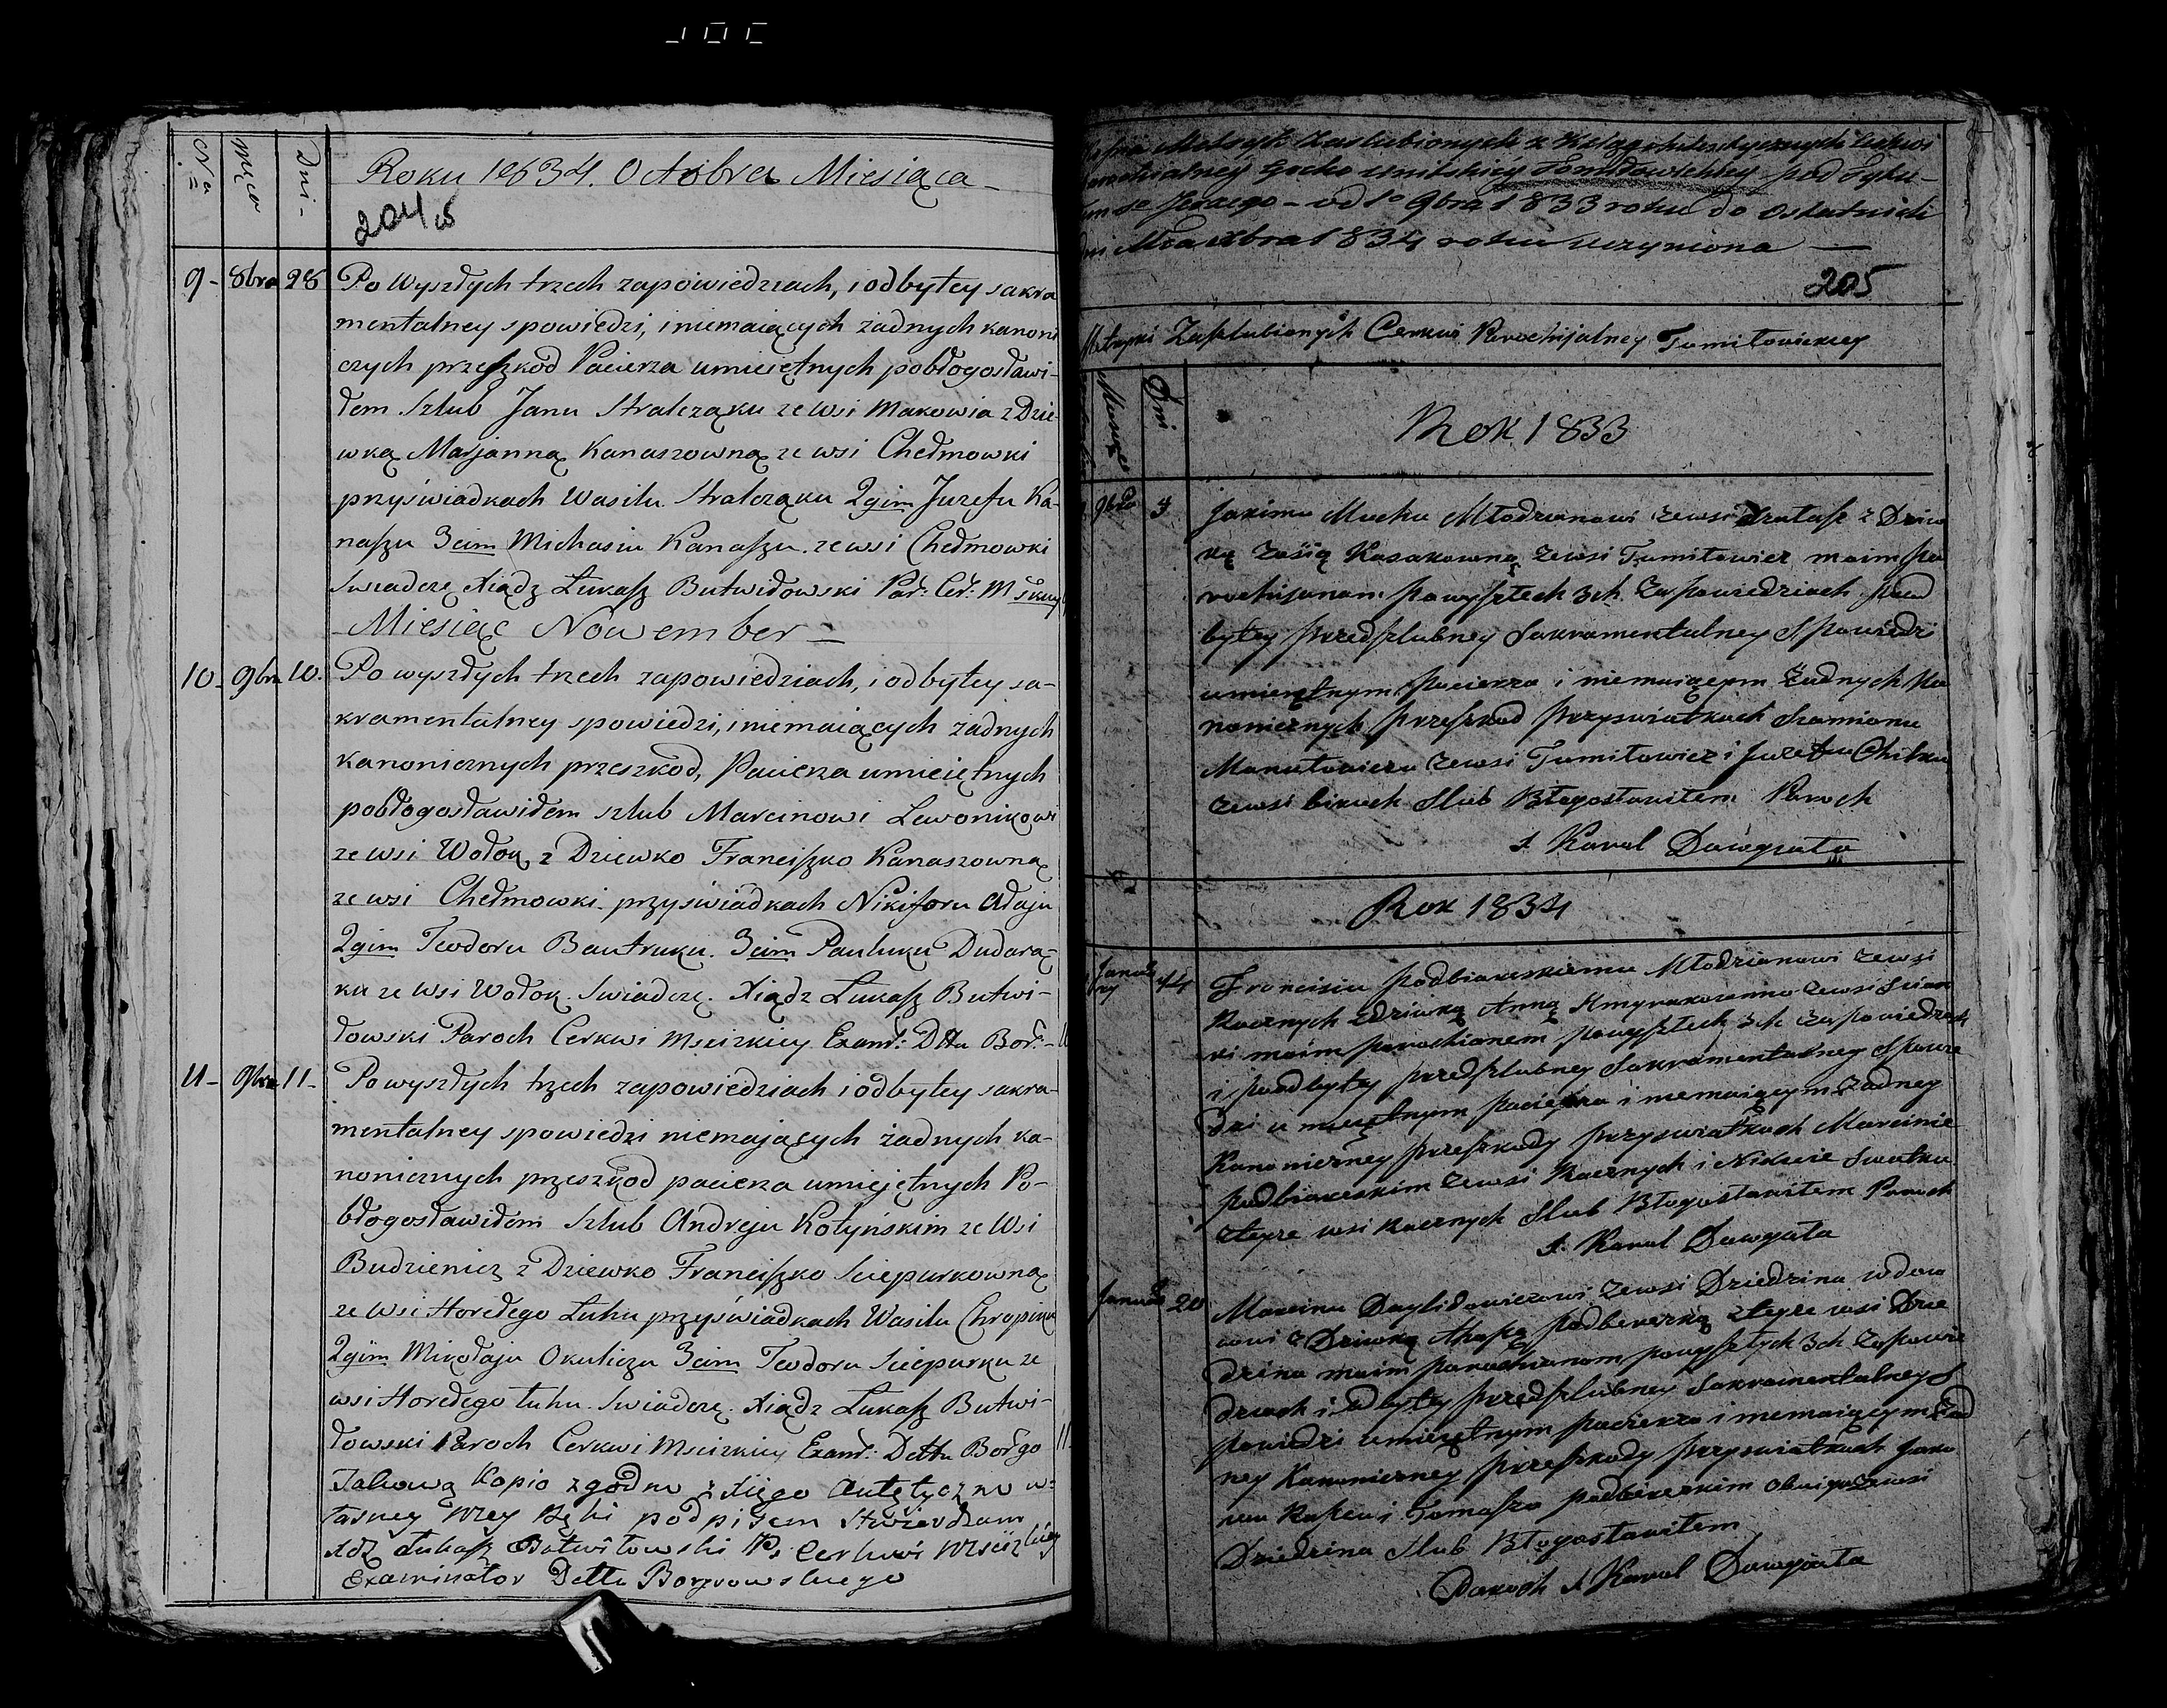 Nº Męca Dni -
Roku 1834. Octobra Miesiąca -
204
9 - 8bra 28 Po wyszłych trzech zapowiedziach, i odbytey sakra
mentalney spowiedzi, i niemaiących żadnych kanoni
czych przeszkod Pacierza umieiętnych pobłogosławi-
łem Szlub Janu Stralczaku ze wsi Makowia z Dzie-
wką Marjanną Kanaszowną ze wsi Chełmowki
przyświadkach Wasilu Stralczaku 2gim Juzefu Ka-
naszu 3cim Michasiu Kanaszu. ze wsi Chełmowki
Swiadczę Xiądz Łukasz Butwiłowski Par: Cer:
- Miesiąc Nowember -
10 - 9bra 10. Po wyszłych trzech zapowiedziach, i odbytey sa-
kramentalney spowiedzi, i niemaiących żadnych
kanonicznych przeszkod, Pacierza umieiętnych
pobłogosławiłem szlub Marcinowi Lewonikowi
ze wsi Wołok z Dziewko Franciszko Kanaszowną
ze wsi Chełmowki przyświadkach Nikiforu Ałaju
2gim Teodoru Bautruku. 3cim Pauluku Dudara-
ku ze wsi Wołok. Swiadczę. Xiądz Łukasz Butwi-
łowski Paroch Cerkwi Mscizkiey Exam: Dttu Bor: -
11 - 9bra 11 - Po wyszłych trzech zapowiedziach i odbytey sakra-
mentalney spowiedzi niemających żadnych ka-
nonicznych przeszkod pacierza umiejętnych Po-
błogosławiłem Szlub Andreju Kotyńskim ze Wsi
Budzienicz z Dziewko Franciszko Sciepurkowną
ze wsi Horełego Łuhu przyświadkach Wasilu Chropiku
2gim Mikołaju Okuliczu 3cim Teodoru Sciepurku ze
wsi Horełego Łuhu. Swiadczę. Xiądz Łukasz Butwi-
łowski Paroch Cerkwi Mscizkiey Exam: Dettu Borgo
Takową Kopio zgodno z Xięgo Autętyczno w-
łasney Mey Ręki podpisem stwierdzam
Xdz Łukasz Butwiłowski Ps Cerkwi Mscizkiey
Examinator Dettu Borysowskiego
Metryk Zaslubionych z Xsiąg Cerkwi
Grecko Unitskiey Tumiłowickiey pod Tytu-
Jerzego - od 1º 9bra 1833 roku do ostatnich
1834 roku uczyniona -
205
Metryki Zaszlubionych Cerkwi Parochijalney Tumiłowickiey
Miesięc Dni
Rok 1833
9bra Jakimu Muchu Młodzianowi ze wsi z Dziw
ką Zosią Kasakowną ze wsi Tumiłowicz moim pa
rochijanom po wyszłech 3ch Zapowiedziach pood
bytey przedszlubney Sakramentalney Spowiedzi
umieiętnym pacierza i niemaiącym Żadnych Ka
nonicznych przeszkod przyswiatkach
ze wsi Tumiłowicz i Juzefu
ze wsi Slub Błogosławiłem Paroch
X Karol Dawgiata
Rok 1834
Januar Franciszu Podbiareskiemu Młodzianowi ze wsi
z dziwką Anną ze wsi
moim parochianom powyszłech 3ch zapowiedziach
i poodbytey przedszlubney Sakramentalney Spowie
dzi umieiętnym pacierza i niemaiącym Żadney
Kanoniczney przeszkody przyswiatkach Marcinie
Podbiareskim ze wsi
zteyze wsi Slub Błogosławiłem Paroch
X. Karol Dawgiata
Januar 20 Marcinu Daylidowiczowi ze wsi Dziedzina wdow
cowi z Dziwką zteyze wsi Dzie
dzina moim parochianom powyszłych 3ch Zapowie
dziach i odbytey przedszlubney Sakramentalney S
powiedzi umieiętnym pacierza i niemaiącym Żad
ney Kanoniczney przeszkody przyswiatkach
i Tomaszo Podbereskim
Dziedzina Slub Błogosławiłem
Paroch X Karol Dawgiata